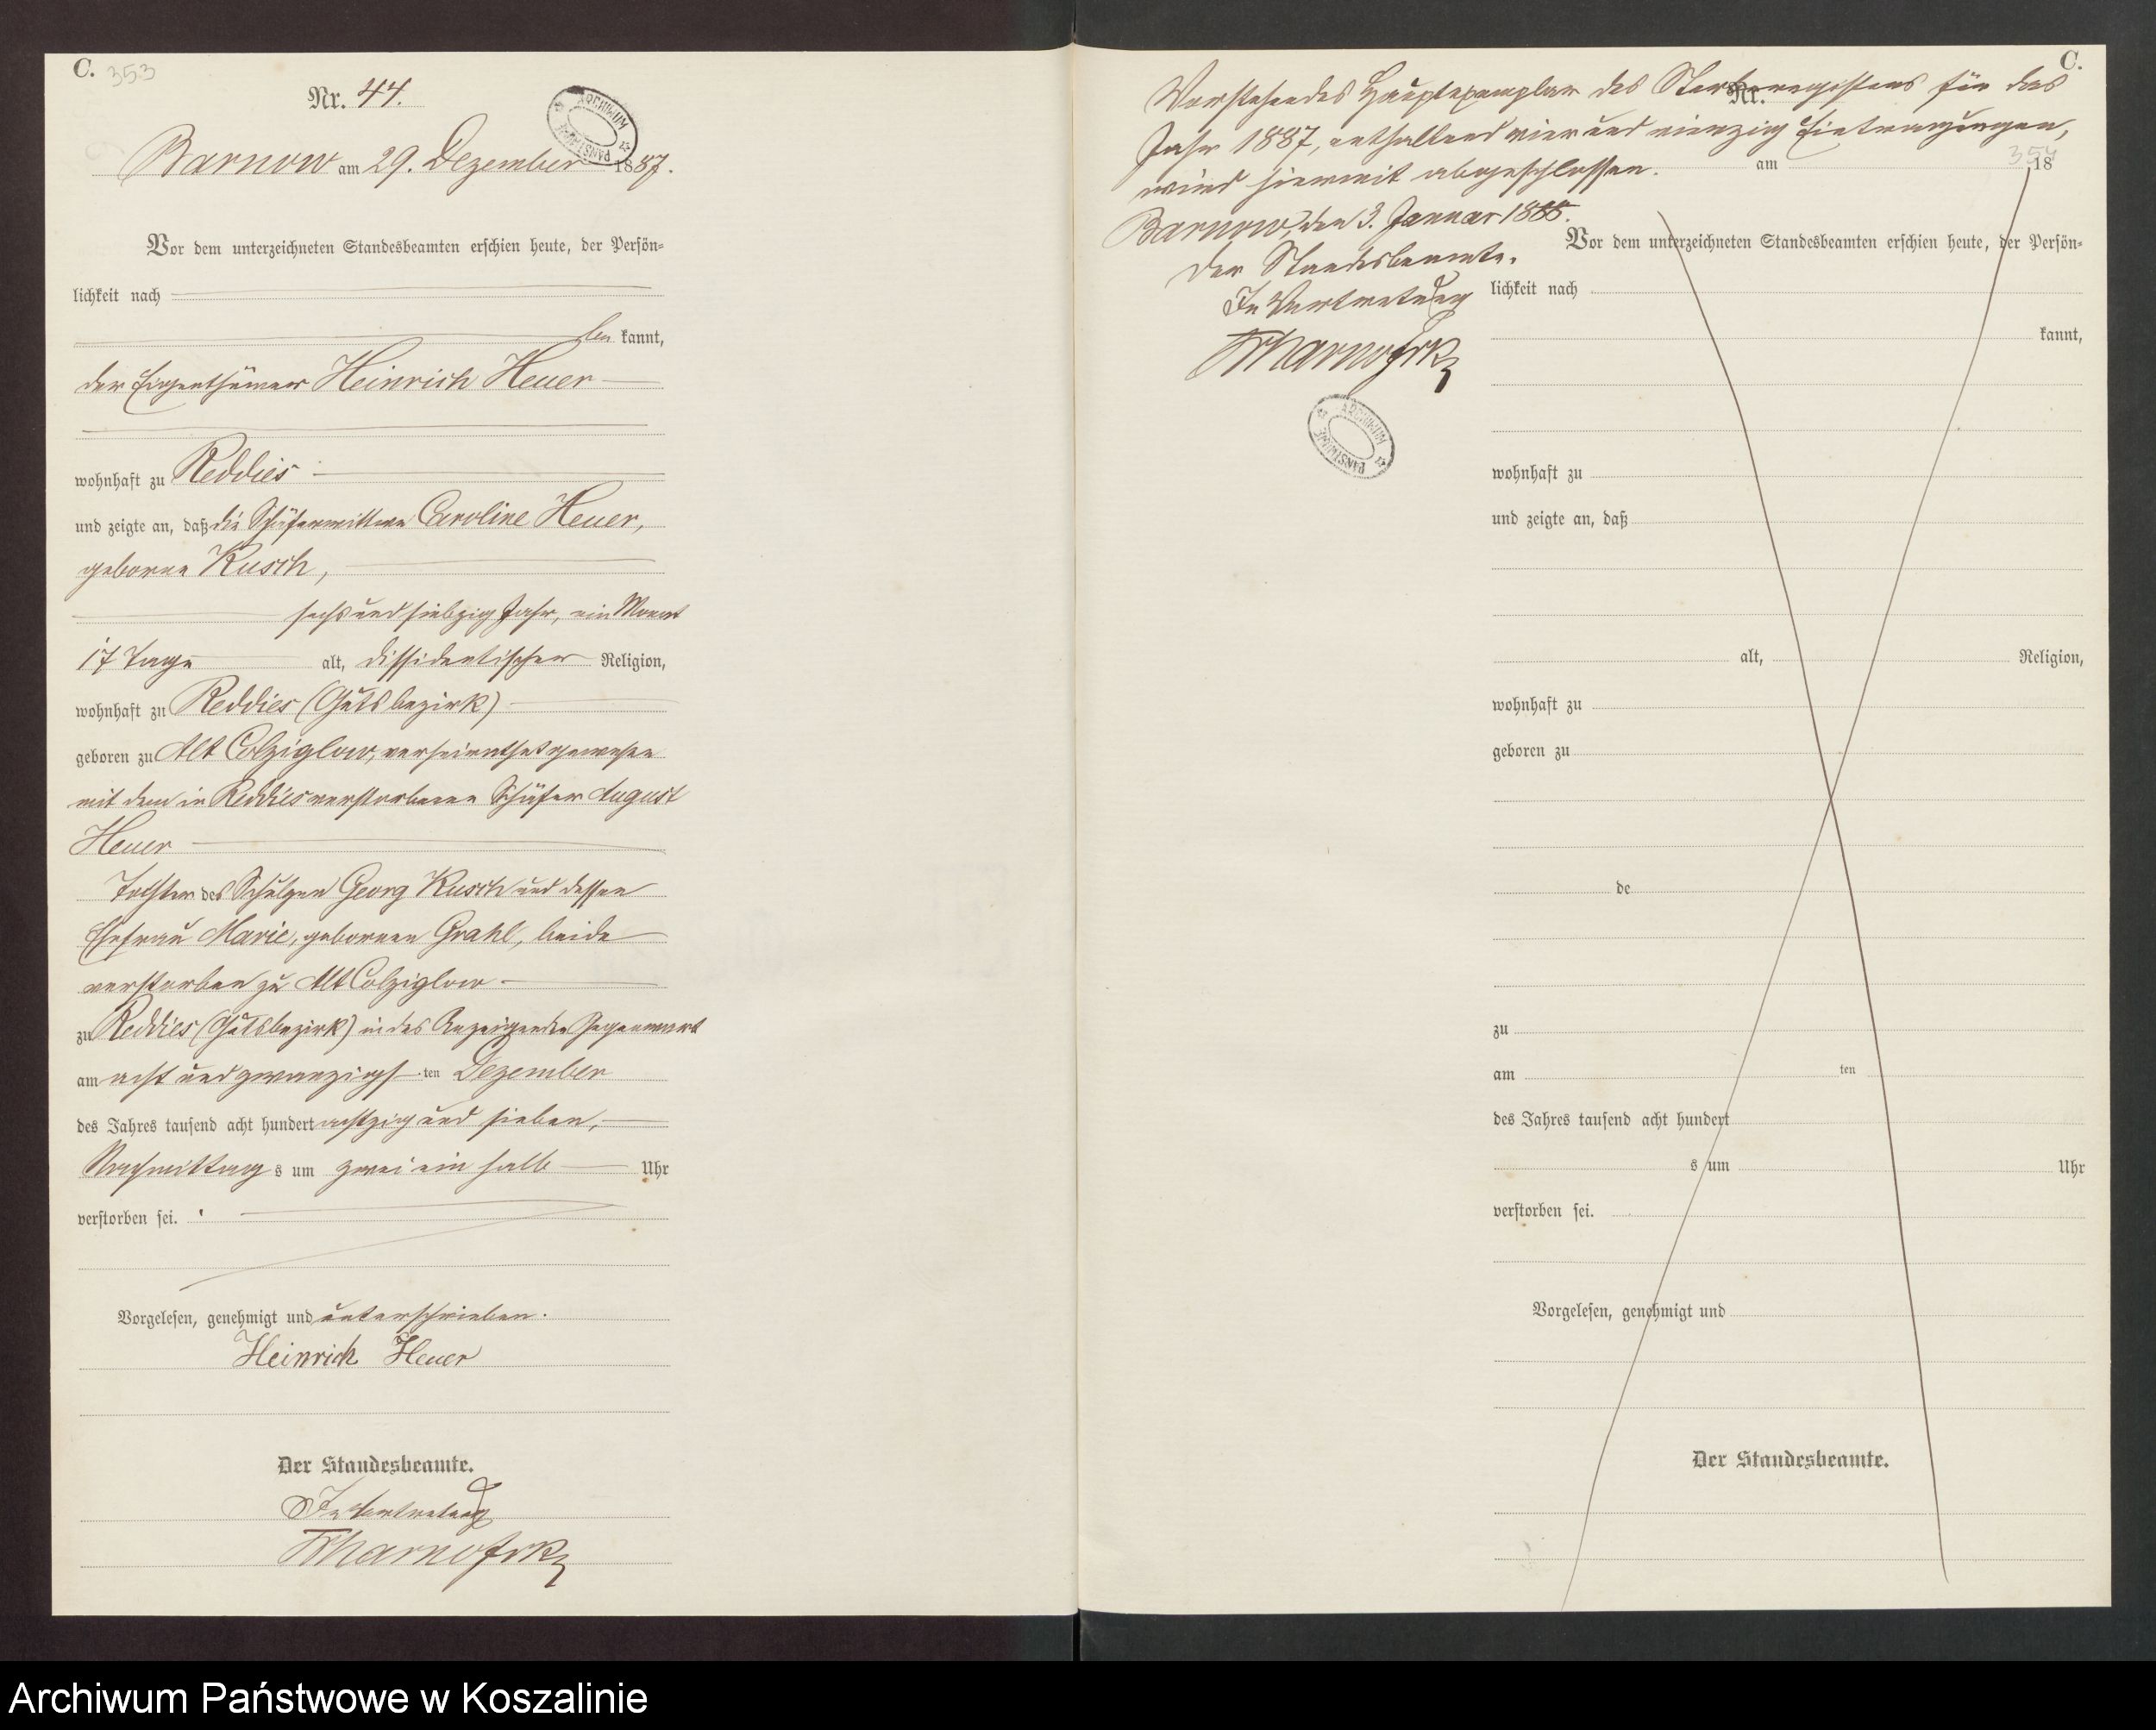 C. 353
Nr. 44.
ARCHIWUM PAŃSTWOWE
Barnow am 29. Dezember 1887.
Vor dem unterzeichneten Standesbeamten erschien heute, der Persön-
lichkeit nach
be kannt,
der Eigenthümer Heinrich Heuer
wohnhaft zu Reddies
und zeigte an, daß die Schäferwittwe Caroline Heuer,
geborne Kusch,
sechs und siebzig Jahr, ein Monat
17 Tage alt, dissidentischer Religion,
wohnhaft zu Reddies (Gutsbezirk)
geboren zu Alt Colziglow, verheirathet gewesen
mit dem in Reddies verstorbenen Schäfer August
Heuer
Tochter des Schulzen Georg Kusch und dessen
Ehefrau Marie, gebornen Grahl, beide
verstorben zu Alt Colziglow
zu Reddies (Gutsbezirk) in des Anzeigenden Gegenwart
am acht und zwanzigs ten Dezember
des Jahres tausend acht hundert achtzig und sieben,
Nachmittag s um zwei ein halb Uhr
verstorben sei.
Vorgelesen, genehmigt und unterschrieben.
Heinrich Heuer
Der Standesbeamte.
In Vertretung
C.
Vorstehendes Hauptexemplar des Sterberegisters für das
Nr.
Jahr 1887, enthaltend vier und vierzig Eintragungen,
354
wird hiermit abgeschlossen. am 18
Barnow den 3. Januar 1888.
Der Standesbeamte.
In Vertretung
ARCHIWUM PAŃSTWOWE
Vor dem unterzeichneten Standesbeamten erschien heute, der Persön-
lichkeit nach
kannt,
wohnhaft zu
und zeigte an, daß
alt, Religion,
wohnhaft zu
geboren zu
de
zu
am ten
des Jahres tausend acht hundert
s um Uhr
verstorben sei.
Vorgelesen, genehmigt und
Der Standesbeamte.
Archiwum Państwowe w Koszalinie